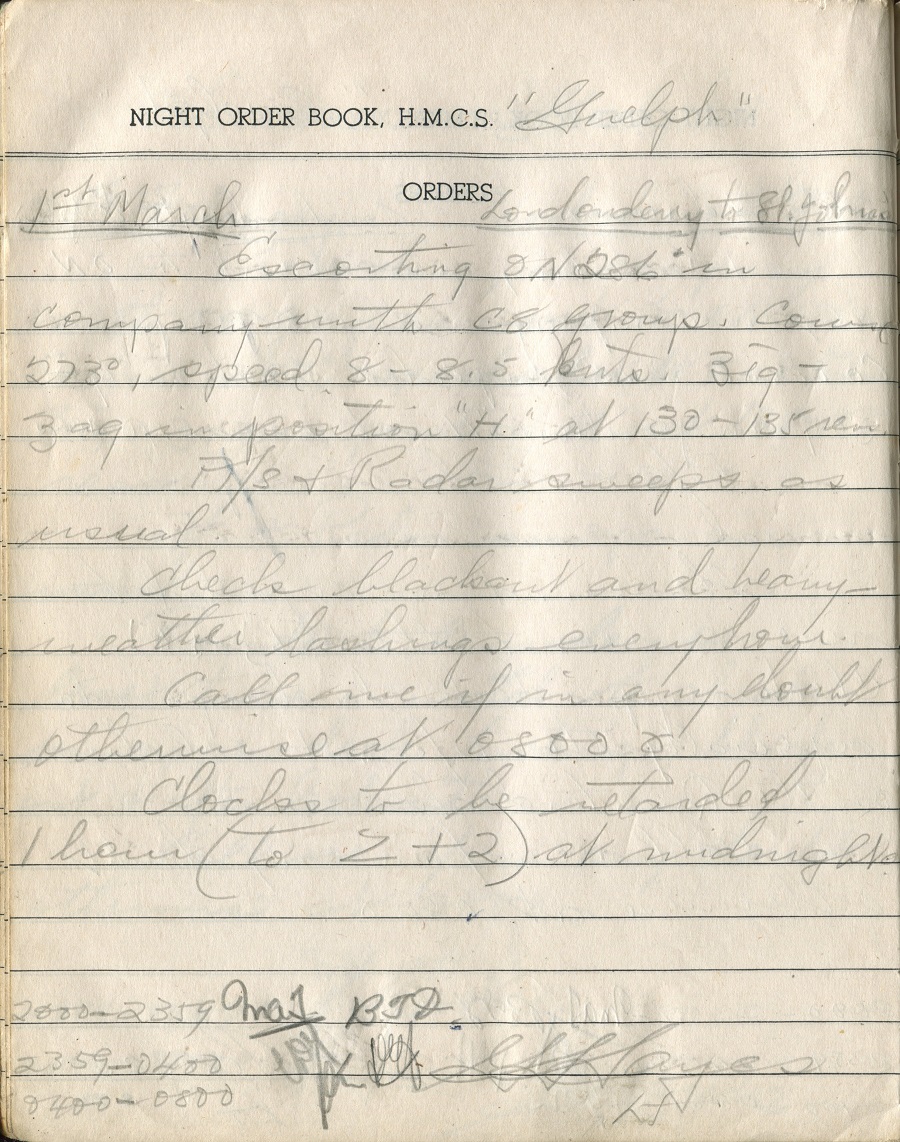 NIGHT ORDER BOOK, H.M.C.S. "Guelph"
ORDERS
1st March Londonderry to St. John's
Escorting ON 286 in
company with C8 group. Course
273°, speed 8 - 8.5 knots. Zig -
zag in position "H" at 130 - 135 rev.
A/S + Radar sweeps as
usual.
Check blackout and heavy
weather lashings every hour.
Call me if in any doubt
otherwise at 0800
Clocks to be retarded
1 hour (to Z + 2) at midnight.
2000 - 2359
2359 - 0400 Hayes
0400 - 0800 Lt